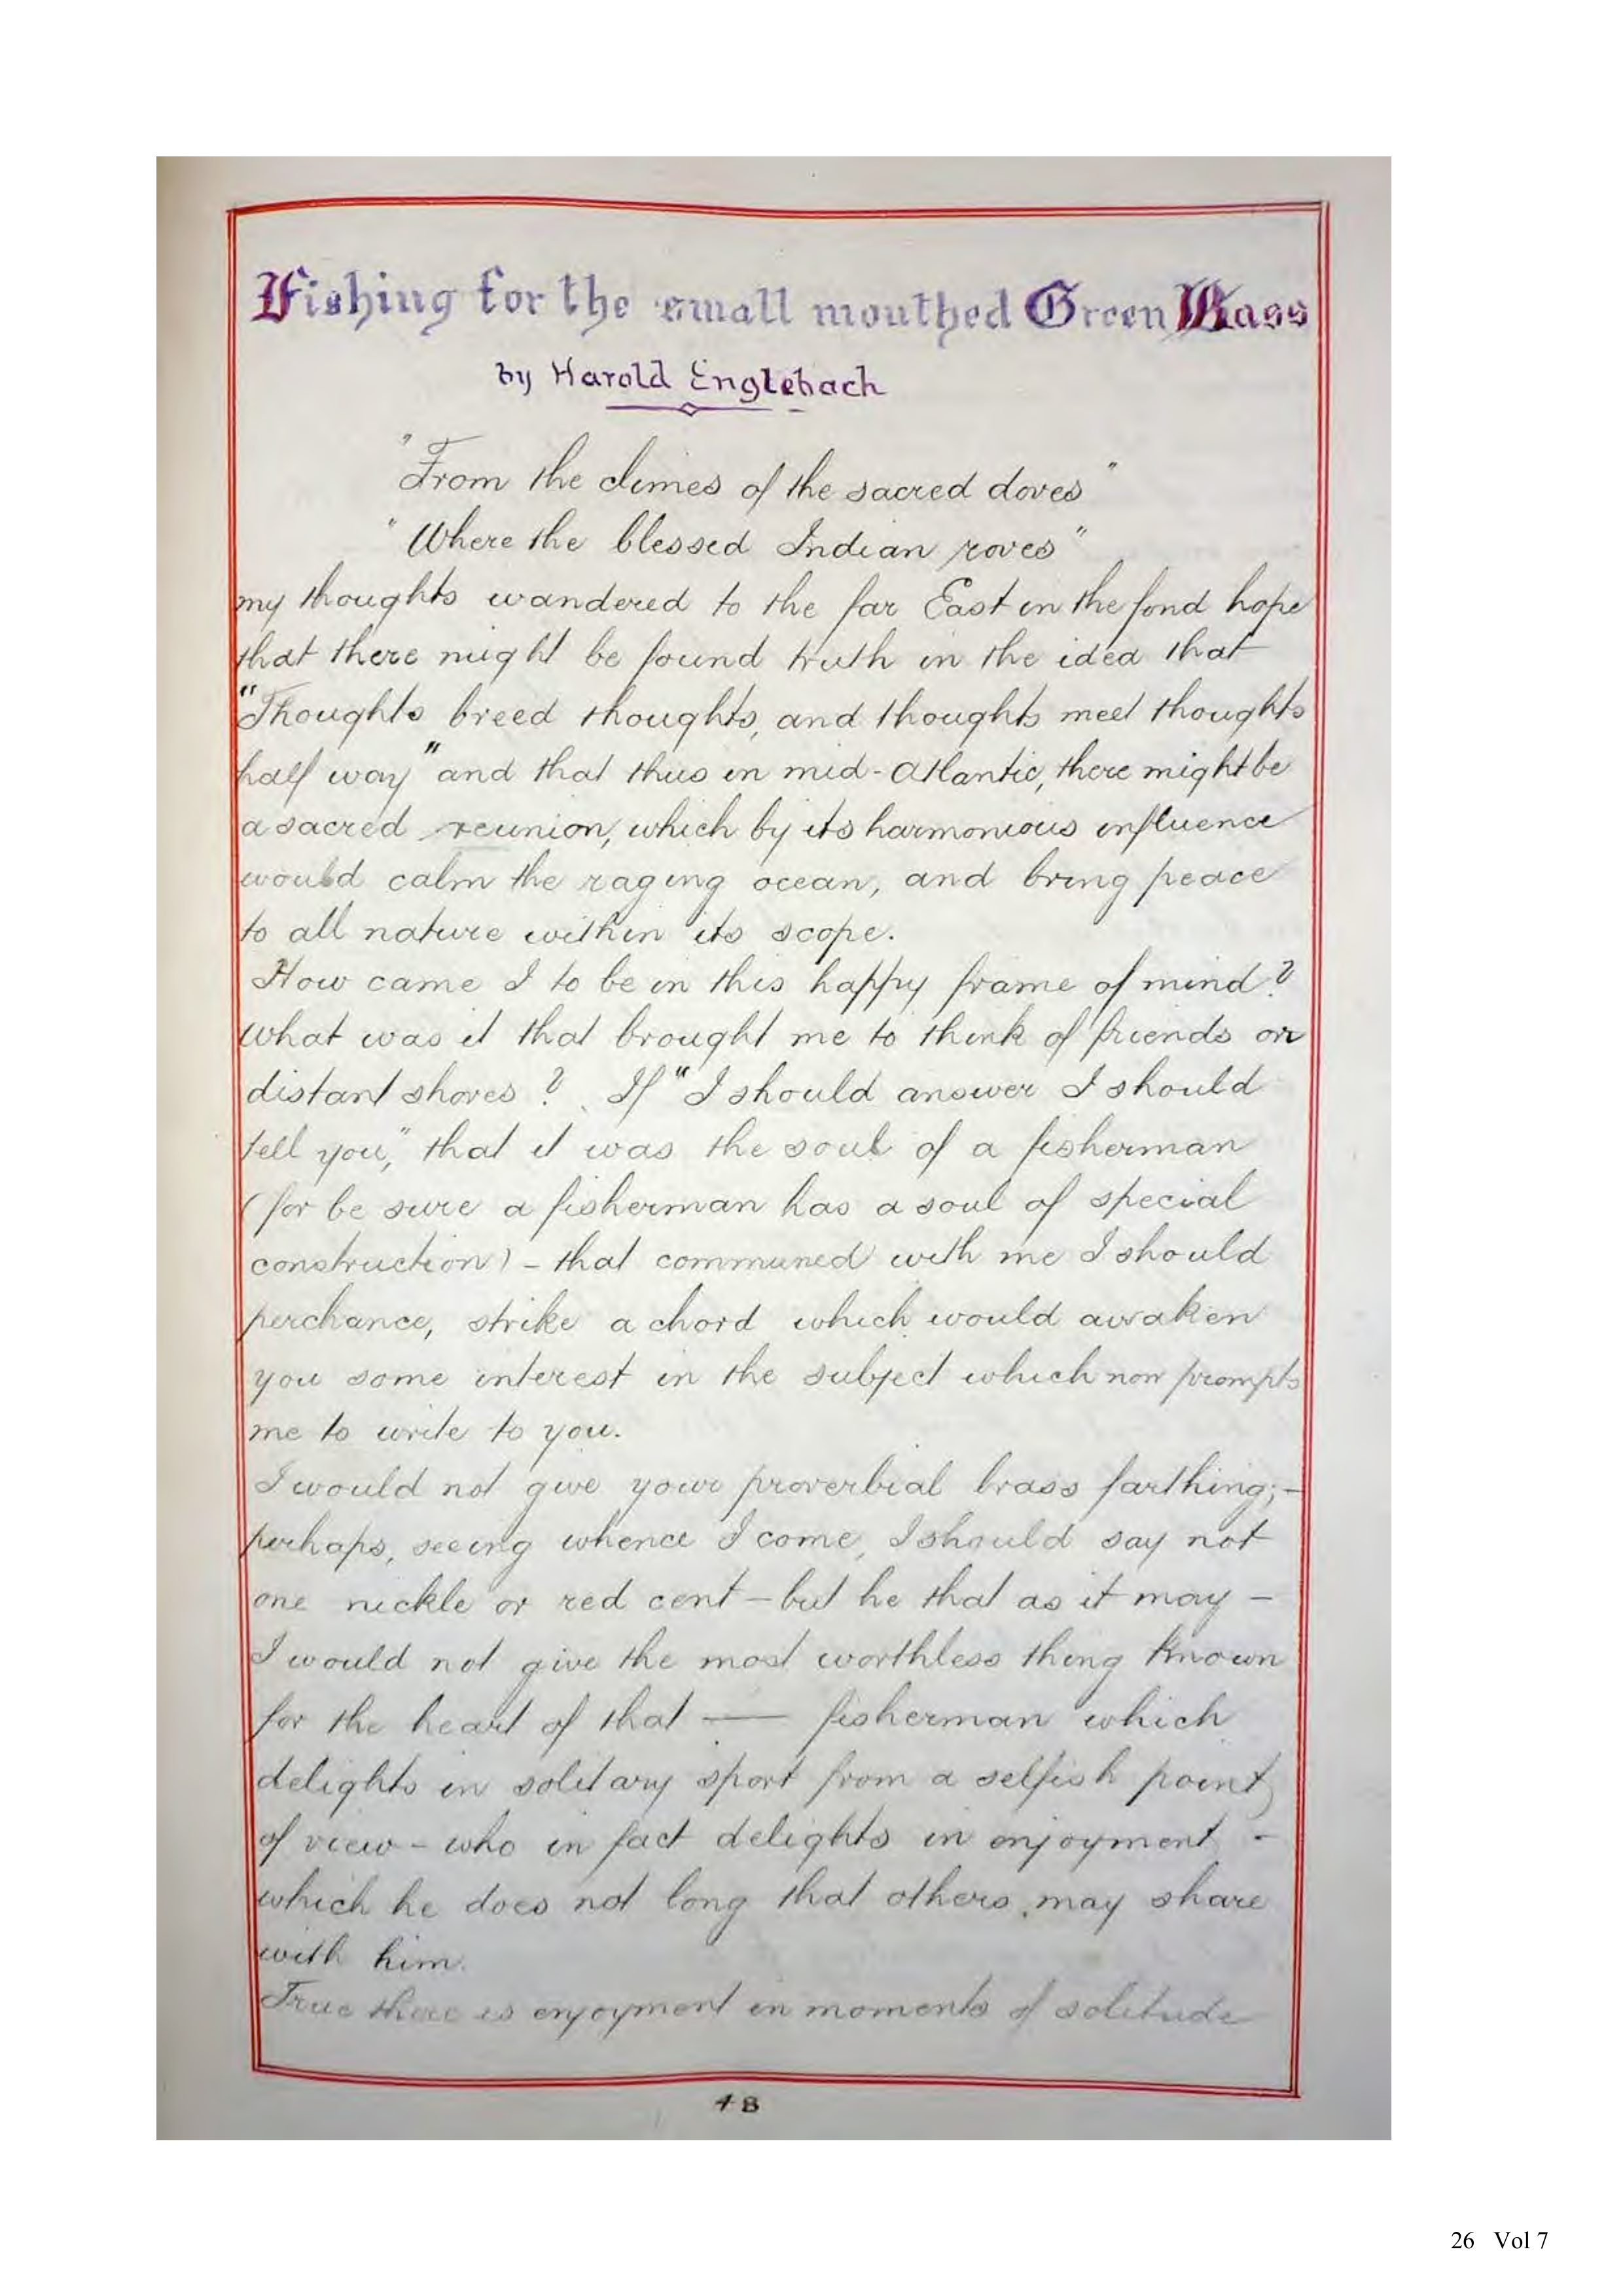 Fishing for the small mouthed Green Bass
by Harold Englebach
"From the climes of the sacred doves"
"Where the blessed Indian roves"
my thoughts wandered to the far East in the fond hope
that there might be found truth in the idea that
"Thoughts breed thoughts, and thoughts meet thoughts
half way" and that thus in mid-Atlantic, there might be
a sacred reunion, which by its harmonious influence
would calm the raging ocean, and bring peace
to all nature within its scope.
How came I to be in this happy frame of mind?
What was it that brought me to think of friends on
distant shores? If "I should answer I should
tell you," that it was the soul of a fisherman
(for be sure a fisherman has a soul of special
construction) - that communed with me I should
perchance, strike a chord which would awaken
you some interest in the subject which now prompts
me to write to you.
I would not give your proverbial brass farthing; -
perhaps, seeing whence I come, I should say not
one nickle or red cent - but he that as it may -
I would not give the most worthless thing known
for the heart of that —— fisherman which
delights in solitary sport from a selfish point
of view - who in fact delights in enjoyment -
which he does not long that others may share
with him.
True there is enjoyment in moments of solitude
48
26 Vol 7